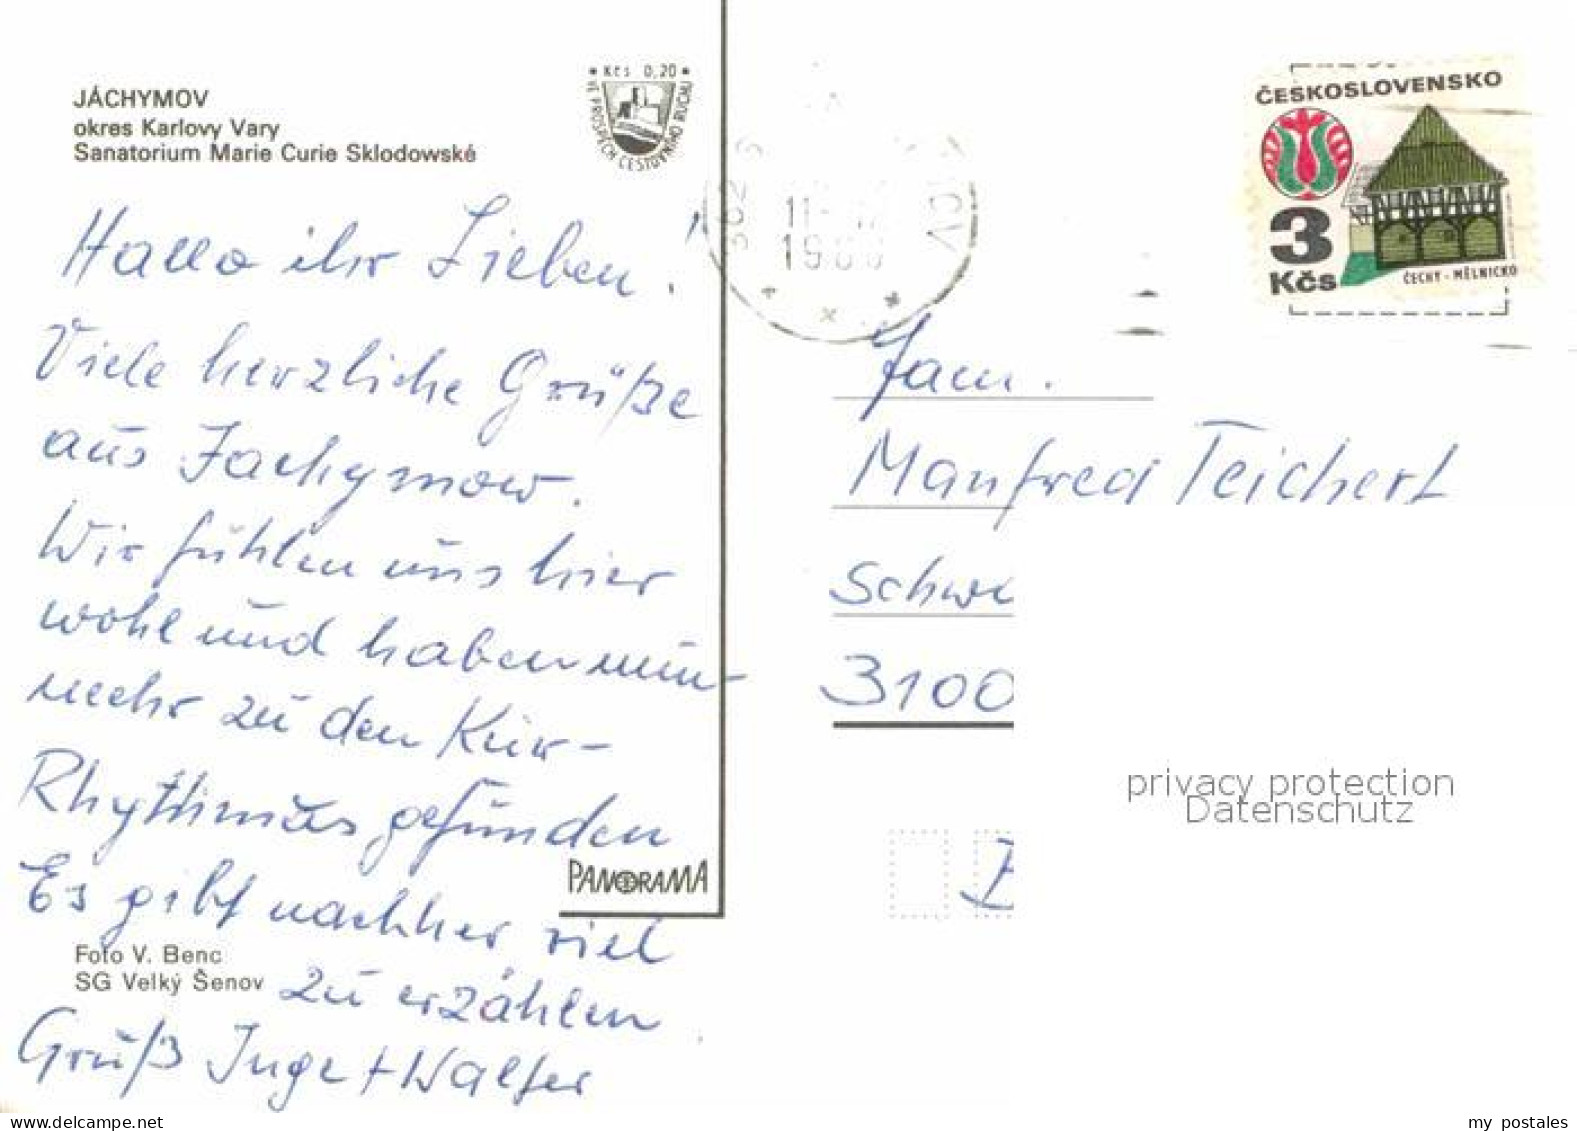 JÁCHYMOV
okres Karlovy Vary
Sanatorium Marie Curie Sklodowské
• Kčs 0,20 •
VE PROSPĚCH CESTOVNÍHO RUCHU
Hallo ihr Lieben!
Viele herzliche Grüße
aus Jachymow.
Wir fühlen uns hier
wohl und haben nun-
mehr zu den Kur-
Rhythmus gefunden
Es gibt nachher viel
zu erzählen
Gruß Inge + Walter
PANORAMA
Foto V. Benc
SG Velký Šenov
362
11-
19
ČESKOSLOVENSKO
3
Kčs
ČECHY - MĚLNICKO
Fam.
Manfred Teichert
Schwe
3100
privacy protection
Datenschutz
my postales